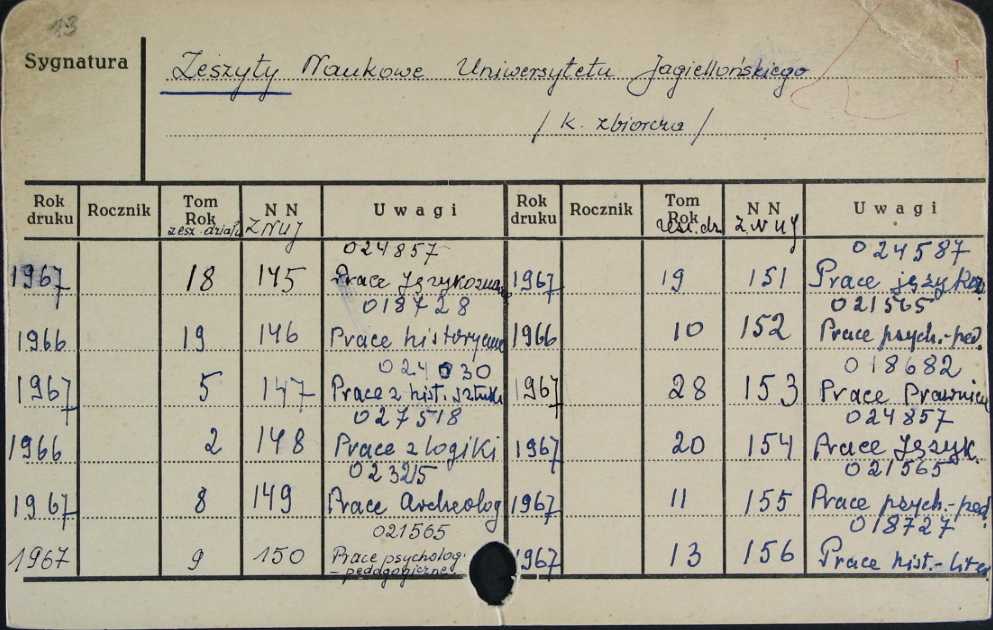 13
Sygnatura Zeszyty Naukowe Uniwersytetu Jagiellońskiego
/ K. zbiorcza /
Rok druku Rocznik Tom Rok zesz. działu N N ZNUJ Uwagi Rok druku Rocznik Tom Rok zesz. dz. N N ZNUJ Uwagi
024857 024587
1967 18 145 Prace Językoznaw 1967 19 151 Prace językoz
018728 021565
1966 19 146 Prace historyczne 1966 10 152 Prace psych.-ped.
024030 018682
1967 5 147 Prace z hist. sztuki 1967 28 153 Prace Prawnicz
027518 024857
1966 2 148 Prace z logiki 1967 20 154 Prace Język.
02325 021565
1967 8 149 Prace Archeolog 1967 11 155 Prace psych.-ped.
021565 018727
1967 9 150 Prace psycholog. 1967 13 156 Prace hist.-liter
-pedagogiczne